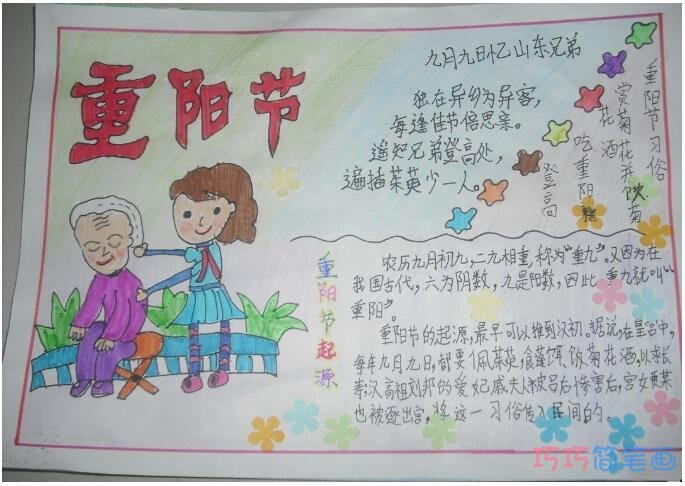 重阳节
九月九日忆山东兄弟
独在异乡为异客，
每逢佳节倍思亲。
遥知兄弟登高处，
遍插茱萸少一人。
重阳节习俗
赏菊花并饮菊
花酒
吃重阳糕
登高
重阳节起源
农历九月初九，二九相重，称为“重九”。又因为在
我国古代，六为阴数，九是阳数，因此，重九就叫“
重阳”。
重阳节的起源，最早可以推到汉初。据说，在皇宫中，
每年九月九日，都要佩茱萸，食蓬饵，饮菊花酒，以求长
寿；汉高祖刘邦的爱妃戚夫人被吕后惨害后，宫女贾某
也被逐出宫，将这一习俗传入民间的。
巧巧简笔画